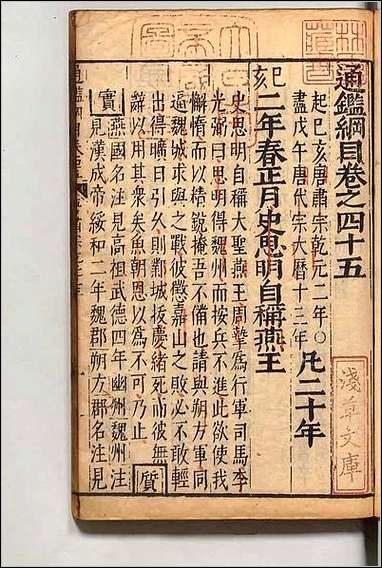 通鑑綱目卷之四十五
起己亥唐肅宗乾元二年〇
盡戊午唐代宗大曆十三年
凡二十年
己亥
二年春正月史思明自稱燕王
史思明自稱大聖燕王周摯爲行軍司馬李
光弼曰思明得魏州而按兵不進此欲使我
懈惰而以精銳掩吾不備也請與朔方軍同
逼魏城求與之戰彼懲嘉山之敗必不敢輕
出得曠日引久則鄴城拔慶緒死而彼無
辭以用其衆矣魚朝恩以爲不可乃止
質
實
燕國名注見高祖武德四年幽州魏州注
見漢成帝綏和二年魏郡朔方郡名注見
淺草文庫